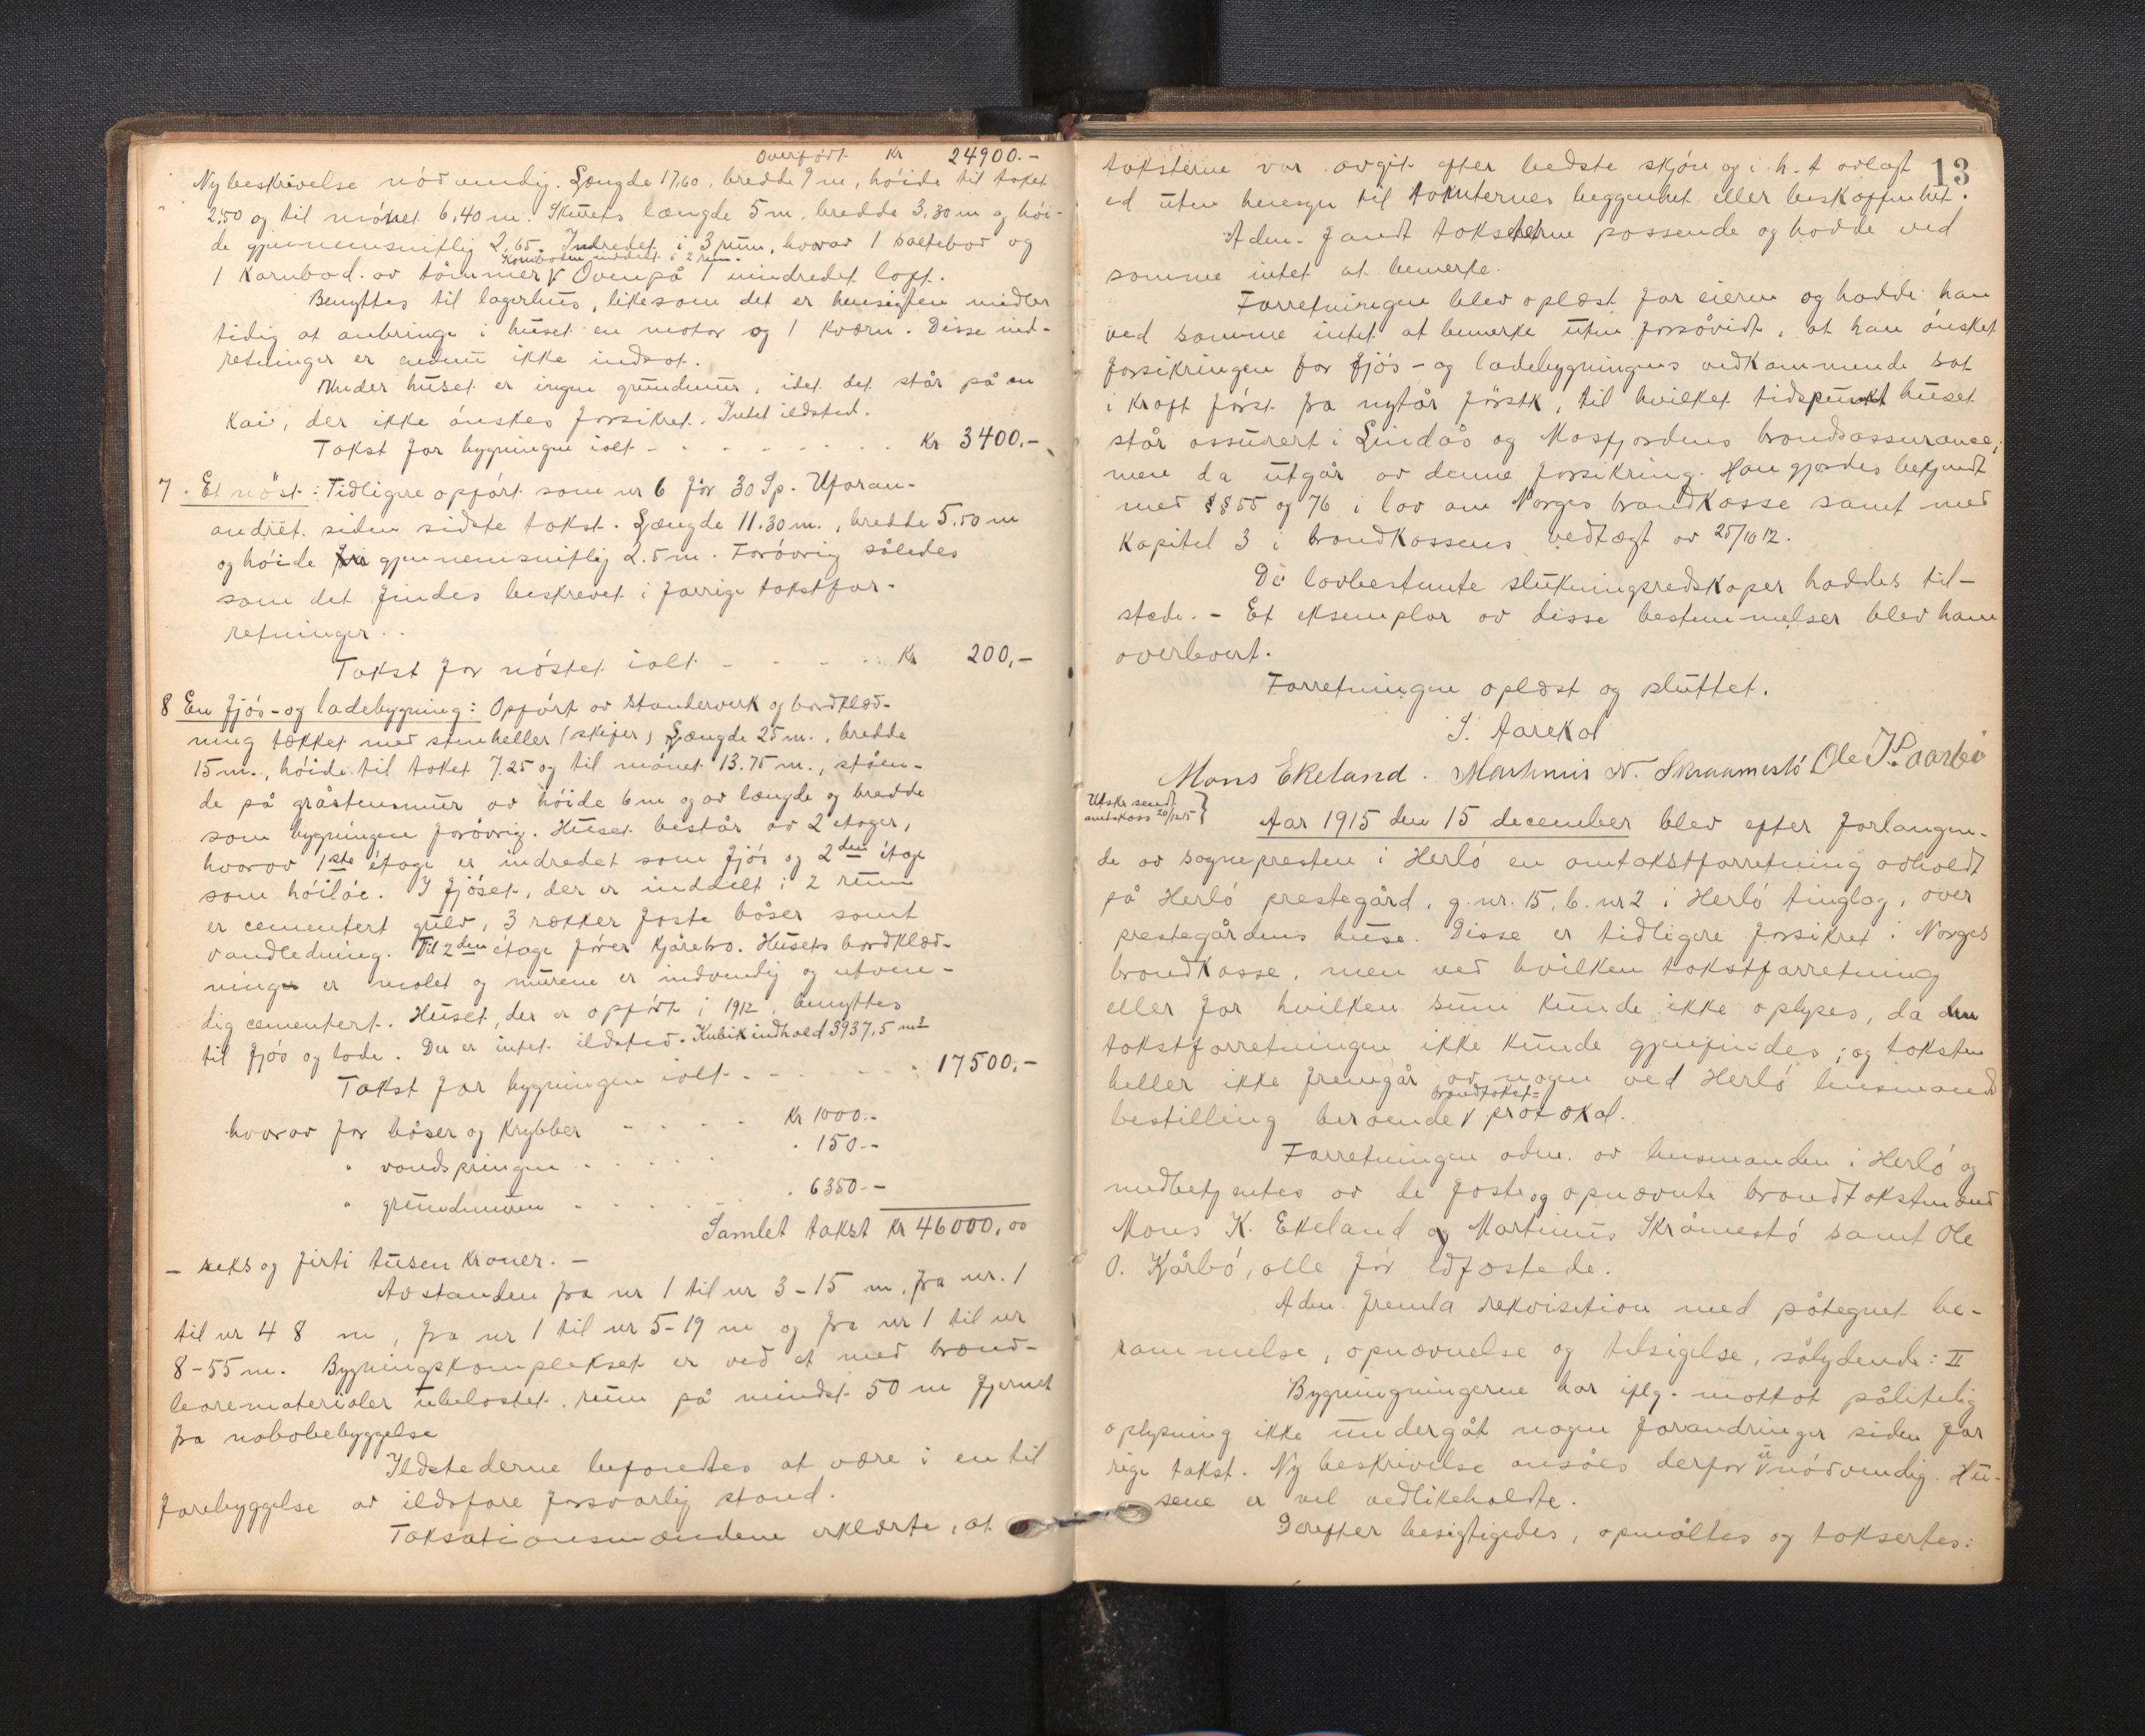 Overført Kr 24900.-
Ny beskrivelse nødvendig. Længde 17,60, bredde 9 m, høide til taket
2,50 og til mønet 6,40 m. Skurets længde 5 m, bredde 3,30 m og høi-
de gjennemsnitlig 2,65. Indredet i 3 rum, hvorav 1 saltebod og
Kornboden inddelt i 2 rum.
1 Kornbod av tømmer V Ovenpå 1 uindredet loft.
Benyttes til lagerhus, likesom det er hensigten midler
tidig at anbringe i huset en motor og 1 kværn. Disse ind-
retninger er endnu ikke indsat.
Under huset er ingen grundmur, idet det står på en
Kai, der ikke ønskes forsikret. Intet ildsted.
Takst for bygningen ialt - - - - Kr 3400.-
7. Et nøst: Tidligere opført som nr 6 for 30 Sp. Uforan-
andret siden sidste takst. Længde 11.30 m., bredde 5,50 m
og høide gjennemsnitlig 2.5 m. Forøvrig således
som det findes beskrevet i forrige takstfor-
retninger.
Takst for nøstet ialt - - - - Kr 200,-
8 En fjøs- og ladebygning: Opført av standerverk og bordklæd-
ning tækket med stenheller (skifer) Længde 25 m., bredde
15 m., høide til taket 7.25 og til mønet 13.75 m., ståen-
de på gråstensmur av høide 6 m og av længde og bredde
som bygningen forøvrig. Huset består av 2 etager,
hvorav 1ste etage er indredet som fjøs og 2den etage
som høiløe. I fjøset, der er inddelt i 2 rum
er cementert gulv, 3 rækker faste båser samt
vandledning. Til 2den etage fører kjørebro. Husets bordklæd-
ning er malet og murene er indvendig og utven-
dig cementert. Huset, der er opført i 1912, benyttes
til fjøs og lade. Der er intet ildsted. Kubikindhold 3937,5 m3
Takst for bygningen ialt - - - - 17500,-
hvorav for båser og Krybber - - - - Kr 1000.-
" vandspringen - - - - " 150.-
" grundmuren - - - - " 6350.-
Samlet takst Kr 46000,00
- seks og firti tusen kroner. -
Avstanden fra nr 1 til nr 3 - 15 m, fra nr. 1
til nr 4 8 m, fra nr 1 til nr 5 - 19 m og fra nr 1 til nr
8 - 55 m. Bygningskomplekset er ved et med brænd-
barematerialer ubelastet rum på mindst 50 m fjernet
fra nabobebyggelse
Ildstederne befandtes at være i en til
forebyggelse av ildsfare forsvarlig stand.
Taksationsmændene erklærte, at
13
taksterne var avgit efter bedste skjøn og i h. t avlagt
ed uten hensyn til tomternes beggenhet eller beskaffenhet.
Adm. fandt taksterne passende og hadde ved
samme intet at bemerke.
Forretningen blev oplæst for eieren og hadde han
ved samme intet at bemerke uten forsåvidt, at han ønsket
forsikringen for fjøs- og ladebygningens vedkommende sat
i kraft først fra nytår førstk, til hvilket tidspunkt huset
står assurert i Lindås og Masfjordens brandassurance,
men da utgår av denne forsikring. Han gjordes bekjendt
med §§ 55 og 76 i lov om Norges brandkasse samt med
Kapitel 3 i brandkassens vedtægt av 25/10 12.
De lovbestemte slukningsredskaper haddes til-
stede. - Et eksemplar av disse bestemmelser blev ham
overlevert.
Forretningen oplæst og sluttet.
S. Aarekol
Mons Ekeland. Martinus N. Skraamestø
Utskr sendt
amtskass 20/12 15
Aar 1915 den 15 december blev efter forlangen-
de av sognepresten i Herlø en omtakstforretning avholdt
på Herlø prestegård, g. nr. 15, b. nr 2 i Herlø tinglag, over
prestegårdens huse. Disse er tidligere forsikret i Norges
brandkasse, men ved hvilken takstforretning
eller for hvilken sum kunde ikke oplyses, da den
takstforretningen ikke kunde gjenfindes; og taksten
heller ikke fremgår av nogen ved Herlø lensmands
brandtakst=
bestilling beroende V protokol.
Forretningen adm. av lensmanden i Herlø og
medbetjentes av de faste og opnævnte brandtakstmænd
Mons K. Ekeland og Martinus Skråmestø samt Ole
O. Kjårbø, alle før edfæstede.
Adm. fremla rekvisition med påtegnet be-
rammelse, opnævnelse og tilsigelse, sålydende: II
Bygningningerne har iflg. mottat pålitelig
oplysning ikke undergåt nogen forandringer siden for
rige takst. Ny beskrivelse ansåes derfor V unødvendig. Hu-
sene er vel vedlikeholdte.
Derefter besigtigedes, opmåltes og taksertes: